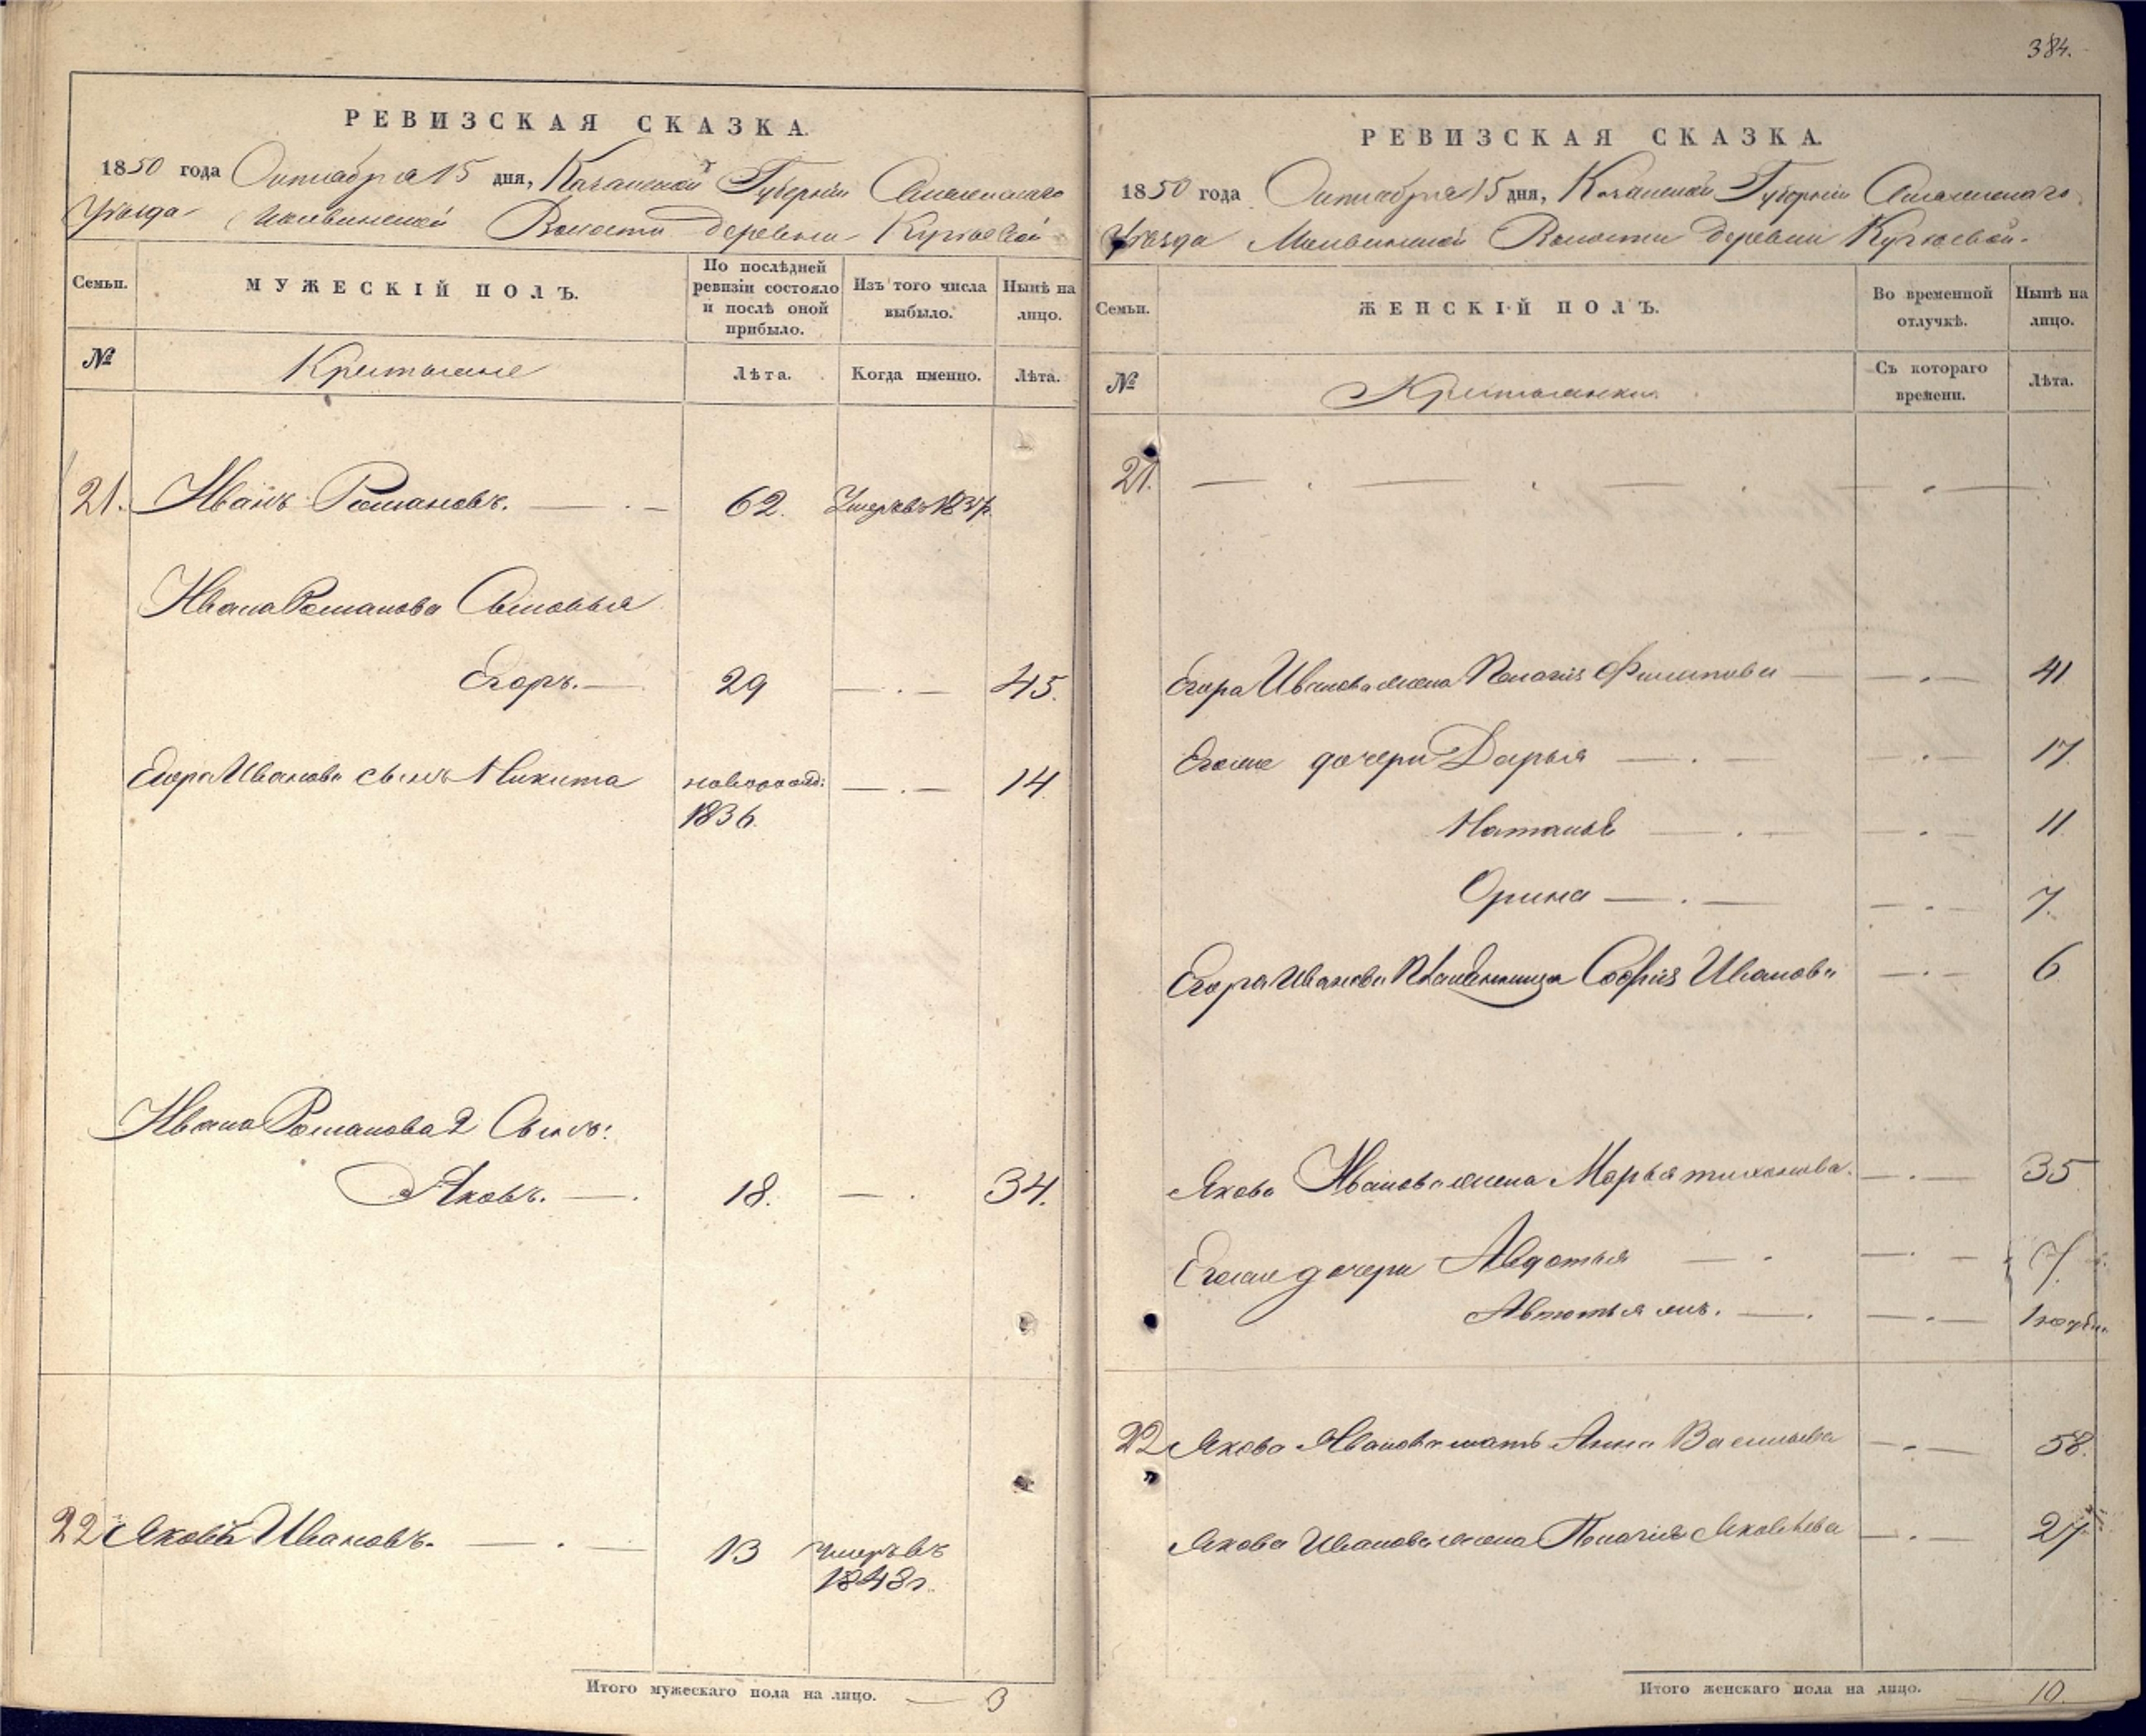 384.
РЕВИЗСКАЯ СКАЗКА.
1850 года Октября 15 дня, Казанской Губернии Спасскаго
Уѣзда Волости деревни
Семьи. МУЖЕСКІЙ ПОЛЪ. По послѣдней ревизіи состояло и послѣ оной прибыло. Изъ того числа выбыло. Нынѣ на лицо.
№ Крестьяне Лѣта. Когда именно. Лѣта.
21. Иванъ Романовъ. 62. Умеръ въ
Ивана Романова Сыновья
Егоръ. 29 45.
Егора Иванова сынъ Никита новорожд: 14
1836.
Ивана Романова 2 Сынъ:
Яковъ. 18. 34.
22 Яковъ Ивановъ. 13 умеръ въ
1848 г.
Итого мужескаго пола на лицо. 3
РЕВИЗСКАЯ СКАЗКА.
1850 года Октября 15 дня, Казанской Губернии Спасскаго
Уѣзда Волости деревни
Семьи. ЖЕНСКІЙ ПОЛЪ. Во временной отлучкѣ. Нынѣ на лицо.
№ Крестьянки Съ котораго времени. Лѣта.
21.
Егора Иванова жена Пелагія Филипова 41
Егоже дочери Дарья 17
Наталья 11
Орина 7.
Егора Иванова Софія Иванова 6
Якова Иванова жена Марья Тихонова. 35
Егоже дочери Авдотья 7.
Автотья 1
22 Якова Иванова мать Анна Васильева 58.
Якова Иванова жена Пелагія Яковлева 27
Итого женскаго пола на лицо. 10.